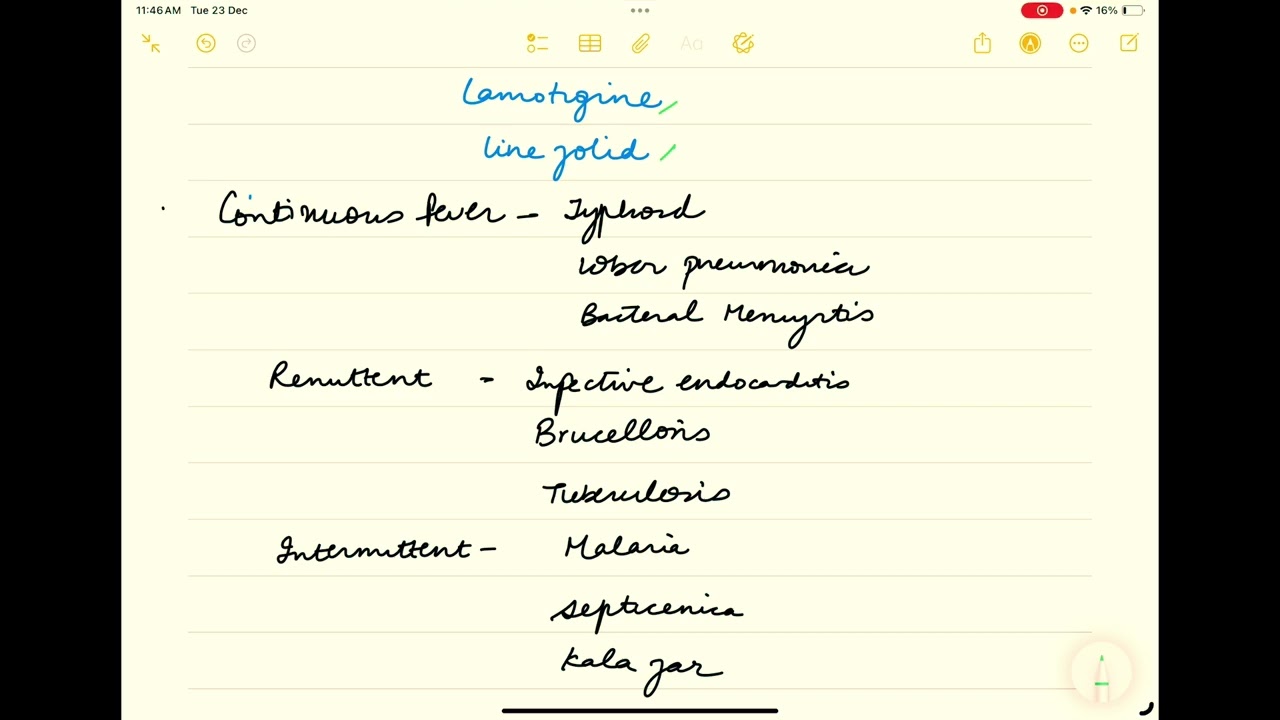 11:46 AM Tue 23 Dec
16%
Aa
Lamotrgine
line zolid
Continuous fever - Typhoid
lobar pneumonia
Bacteral Meningitis
Remittent - Infective endocarditis
Brucellosis
Tuberculosis
Intermittent - Malaria
septicemica
kala zar